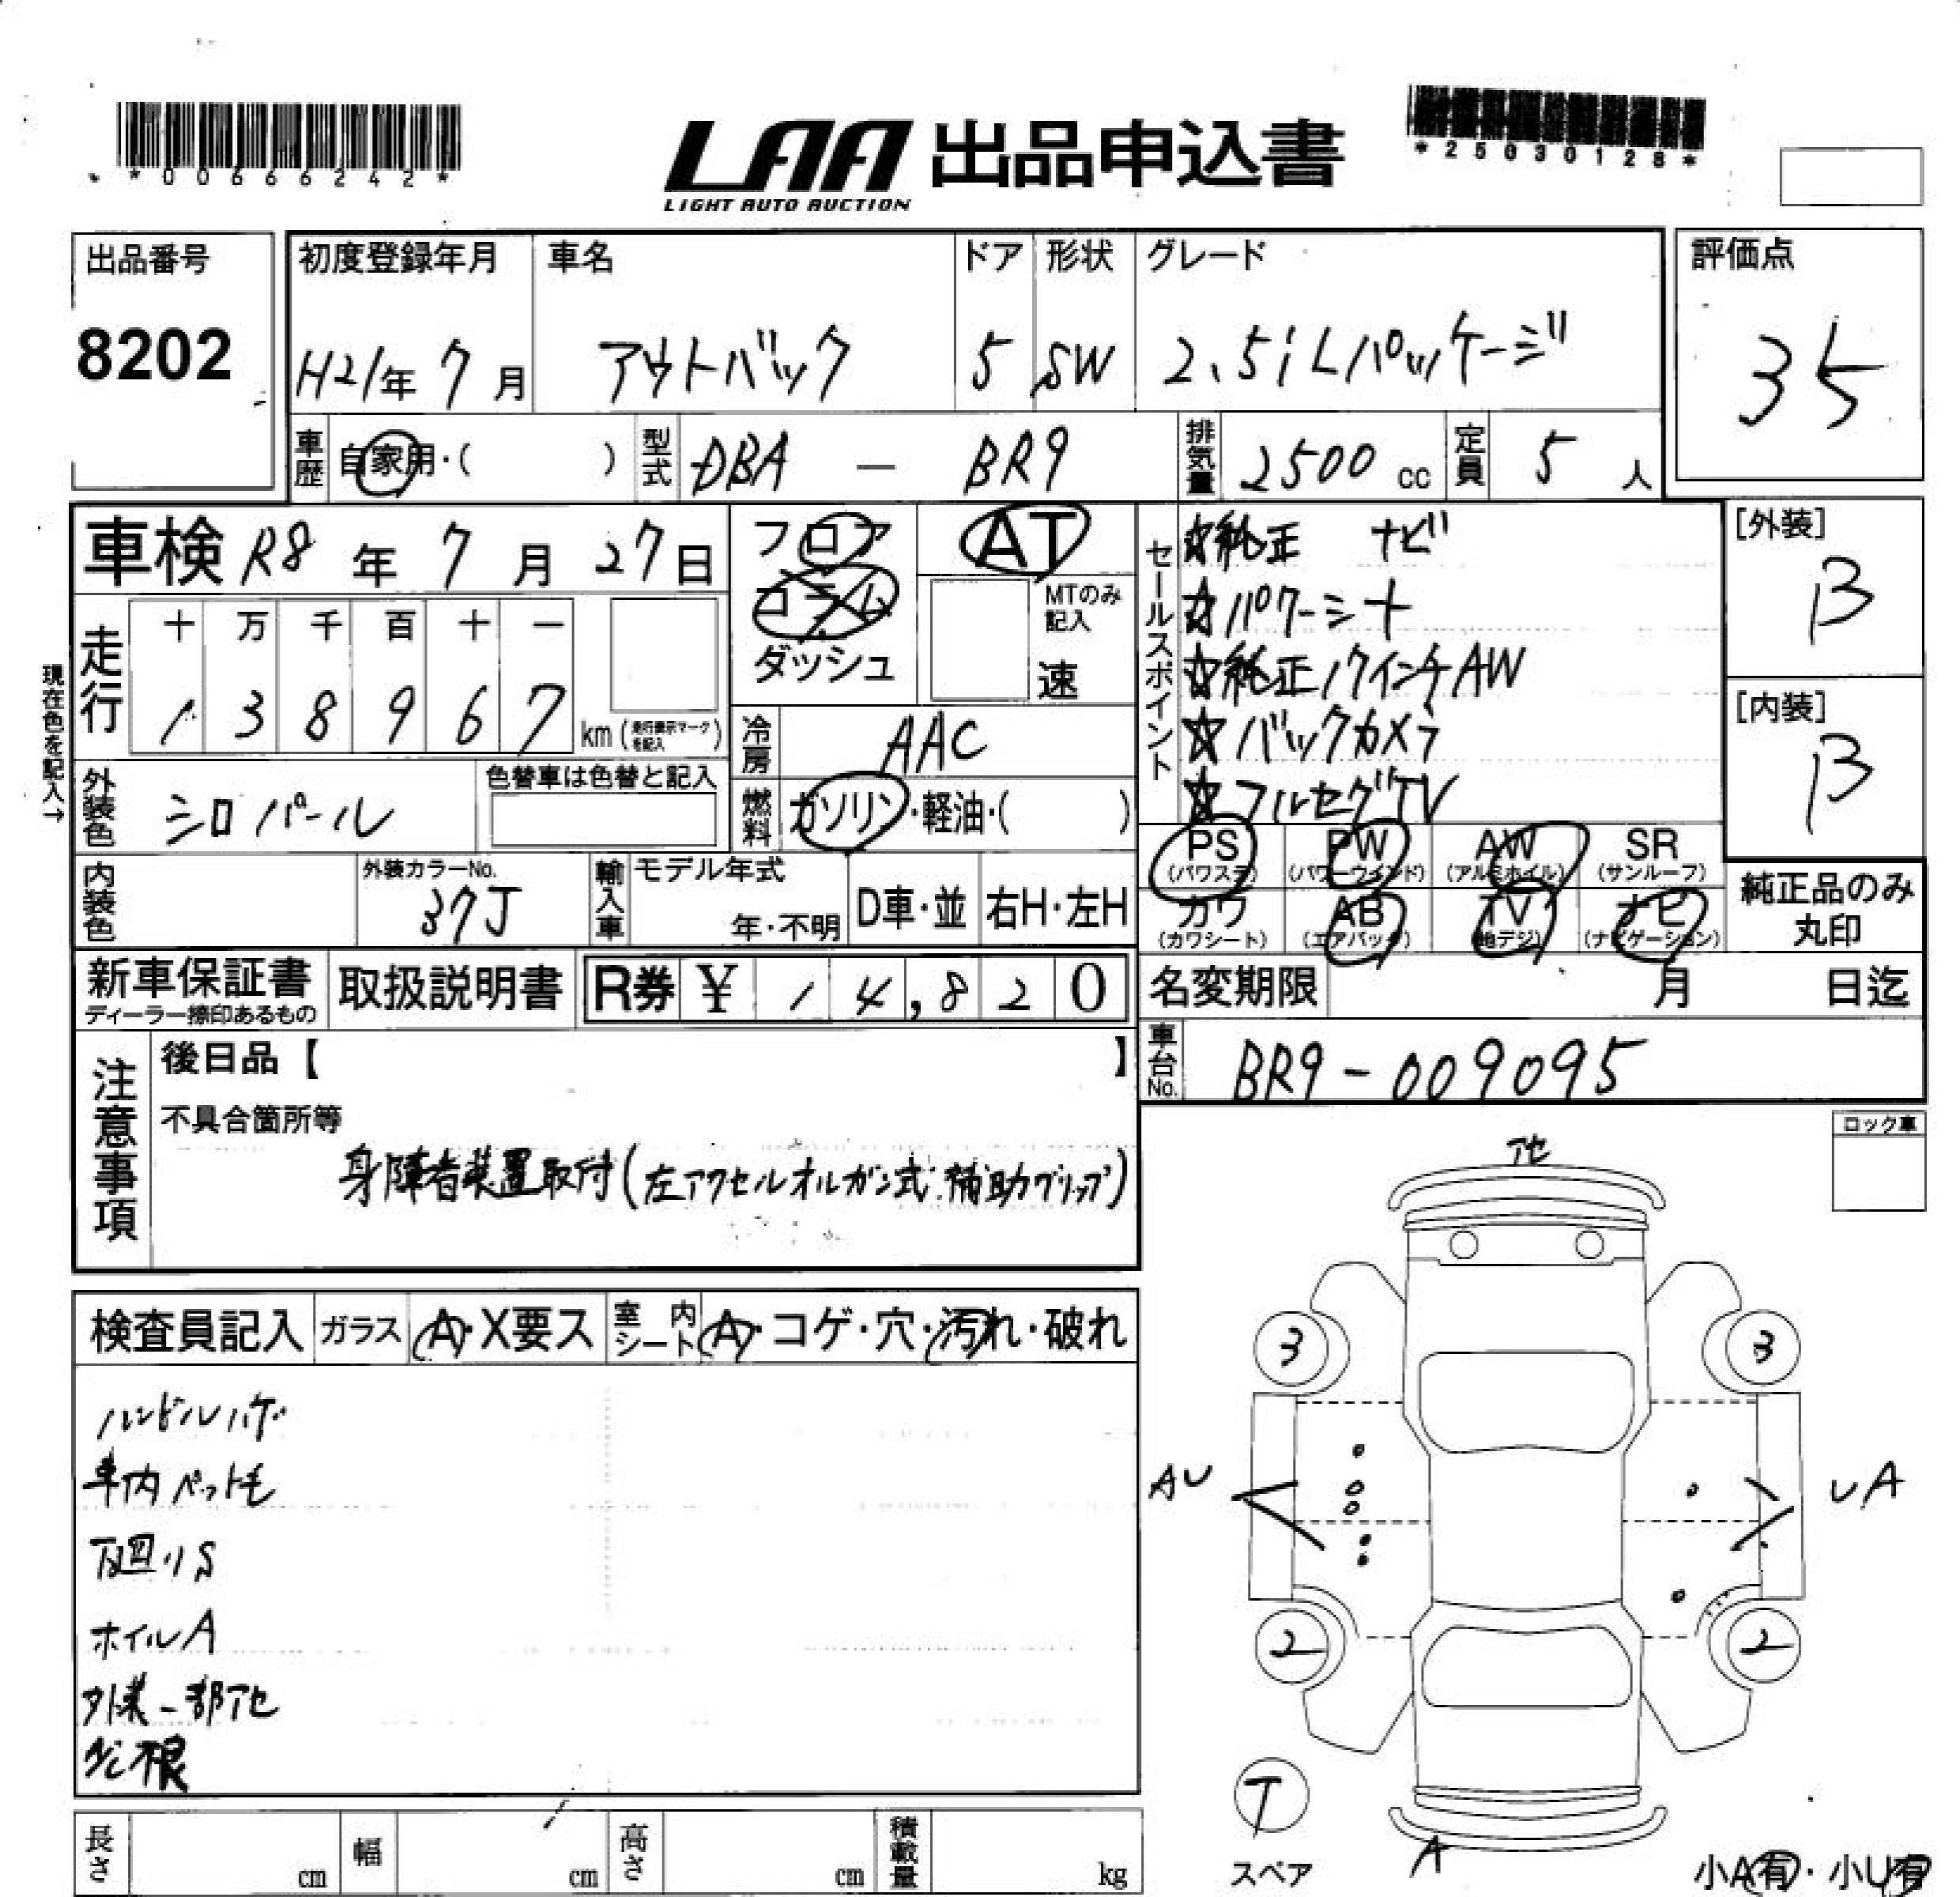 *00666242*
LAA 出品申込書
LIGHT AUTO AUCTION
*25030128*
出品番号
8202
初度登録年月 車名 ドア 形状 グレード
H21年 7月 アウトバック 5 SW 2.5i Lパッケージ
評価点
35
車歴 自家用・( ) 型式 DBA — BR9 排気量 2500cc 定員 5人
車検 R8年 7月 27日
フロア
コラム
ダッシュ
AT
MTのみ記入
速
現在色を記入→
走行 十 万 千 百 十 一
1 3 8 9 6 7 km (走行表示マークを記入)
冷房 AAC
燃料 ガソリン・軽油・( )
外装色 シロパール
色替車は色替と記入
内装色
外装カラーNo.
37J
輸入車 モデル年式
年・不明 D車・並 右H・左H
セールスポイント
☆純正 ナビ
☆パワーシート
☆純正17インチAW
☆バックカメラ
☆フルセグTV
[外装]
B
[内装]
B
PS PW AW SR
(パワステ) (パワーウインド) (アルミホイル) (サンルーフ)
カワ AB TV ナビ
(カワシート) (エアバック) (地デジ) (ナビゲーション)
純正品のみ
丸印
新車保証書
ディーラー捺印あるもの
取扱説明書
R券 ¥ 14,820
名変期限 月 日迄
車台No. BR9-009095
注意事項
後日品【 】
不具合箇所等
身障者装置取付(左アクセルオルガン式 補助グリップ)
ロック車
検査員記入 ガラス A・X要ス 室内シート A・コゲ・穴・汚れ・破れ
ハンドルハゲ
車内ペット毛
下廻りS
ホイルA
外装一部アセ
アセ
3 3
AU UA
2 2
T
スペア
A
小A有・小U有
長さ cm 幅 cm 高さ cm 積載量 kg